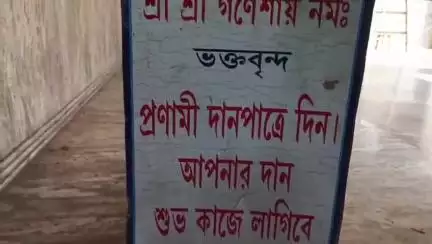 শ্রী শ্রী গণেশায় নমঃ
ভক্তবৃন্দ
প্রণামী দানপাত্রে দিন।
আপনার দান
শুভ কাজে লাগিবে